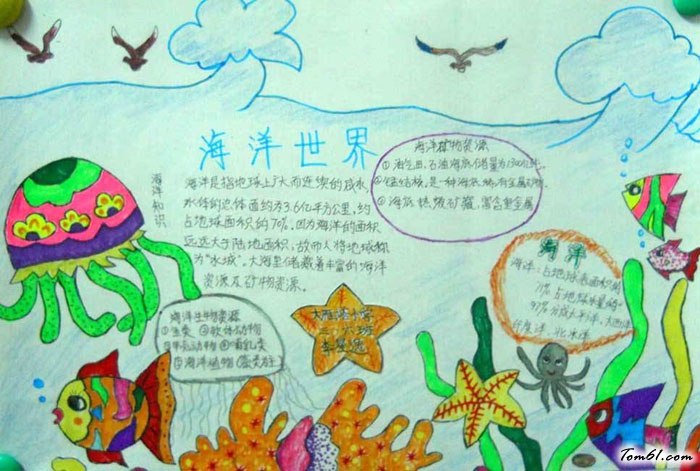 海洋世界
海洋知识
海洋是指地球上广大而连续的咸水
水体的总体面约为3.6亿平方公里,约
占地球面积的70%。因为海洋的面积
远远大于陆地面积,故而人将地球称
为“水城”。大海里储藏着丰富的海洋
资源及矿物资源。
海洋矿物资源
①油气田,石油海底储量为1300亿
是一种海底
③海底热液矿藏,富含重金属
海洋
海洋:占地球表面积的
占地球水量的
97%,分成太平洋,大西洋
印度洋,北冰洋
海洋生物资源
①鱼类 ②软体动物
动物 ④哺乳类
⑤海洋植物(藻类)
三、六班
Tom61.com